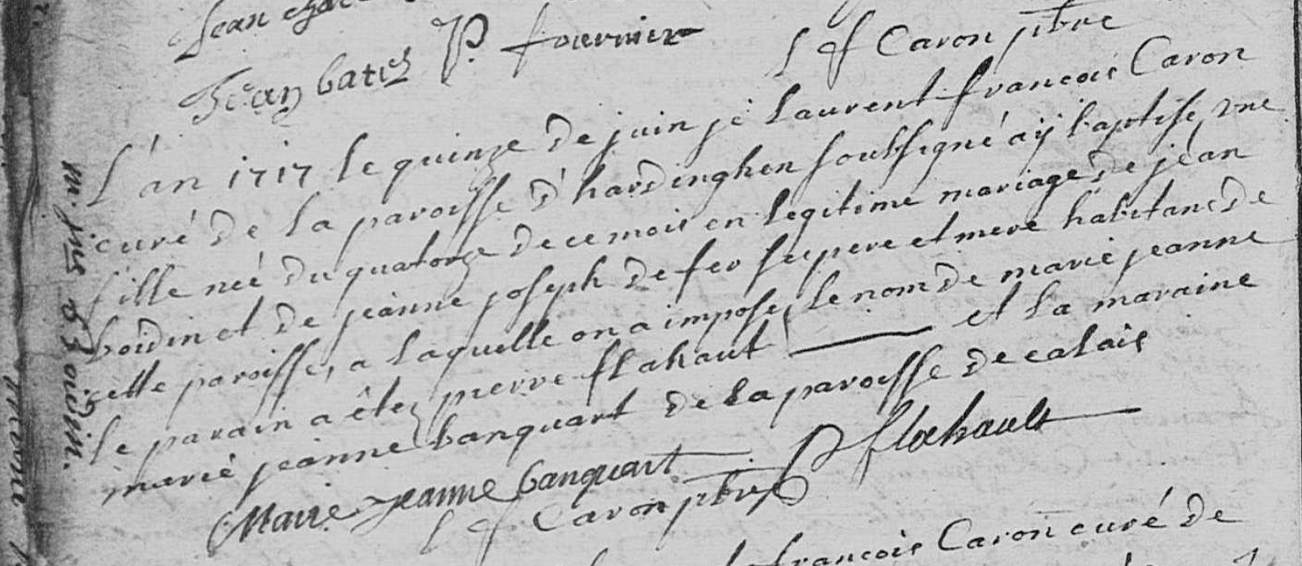 Jean
Jean bates P. fournier
L f Caron ptbre
L'an 1717 le quinze de juin je laurent francois Caron
curé de la paroisse d'hardinghen soubsigné aÿ baptise vne
fille neé du quatorze de ce mois en legitime mariage de jean
boidin et de jeanne joseph de fer ses pere et mere habitans de
cette paroisse, a laquelle on a imposé le nom de marie jeanne
le parain a êtez pierre flahaut et la maraine
marie jeanne banquart de la paroisse de calais
Marie Jeanne banquart P flahault
L f Caron ptbre
francois Caron curé de
m. j. B Boidin.